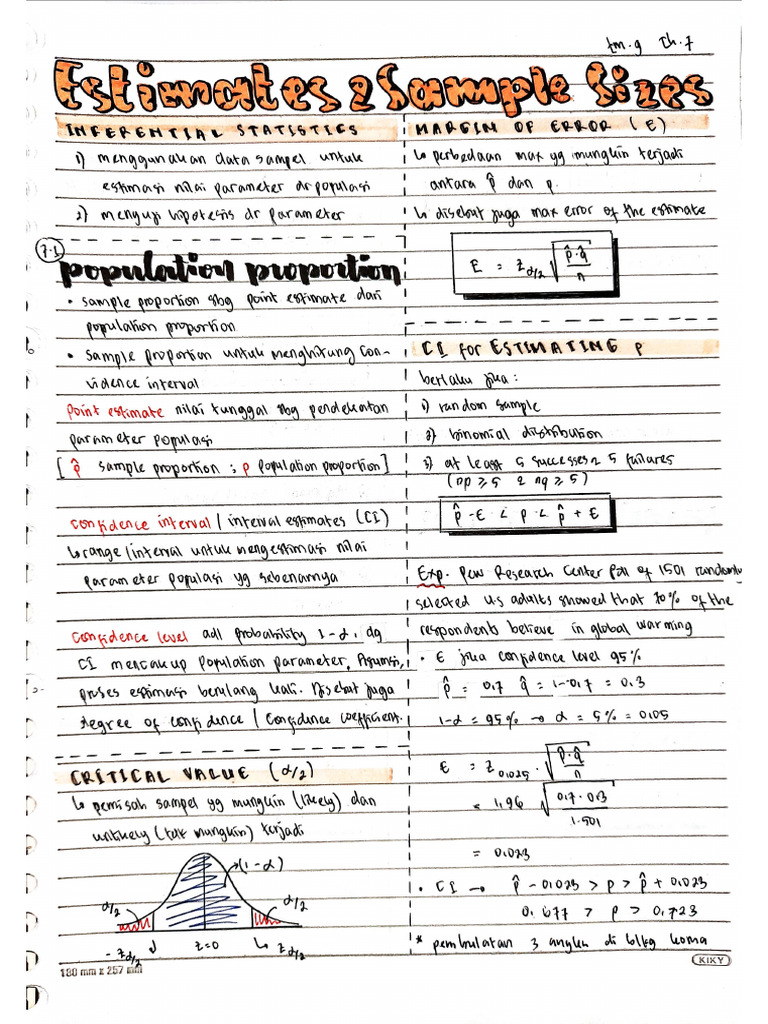 tm.9 Ch.7
Estimates & Sample Sizes
INFERENTIAL STATISTICS
1) menggunakan data sampel untuk
estimasi nilai parameter dr populasi
2) menguji hipotesis dr parameter
7.1
population proportion
• sample proportion sbg point estimate dari
population proportion
• sample proportion untuk menghitung con-
vidence interval
point estimate nilai tunggal sbg pendekatan
parameter populasi
[ p̂ sample proportion ; p population proportion]
confidence interval / interval estimates (CI)
↳ range/interval untuk mengestimasi nilai
parameter populasi yg sebenarnya
Confidence level adl probability 1-α, dg
CI mencakup population parameter. Asumsi,
proses estimasi berulang kali. Disebut juga
degree of confidence / Confidence coefficient.
CRITICAL VALUE (α/2)
↳ pemisah sampel yg mungkin (likely) dan
unlikely (tdk mungkin) terjadi
(1-α)
α/2
α/2
-zα/2
z=0
zα/2
180 mm x 257 mm
MARGIN OF ERROR (E)
↳ perbedaan max yg mungkin terjadi
antara p̂ dan p.
↳ disebut juga max error of the estimate
E = zα/2 √(p̂·q̂/n)
CI for ESTIMATING p
berlaku jika:
1) random sample
2) binomial distribution
3) at least 5 successes & 5 failures
(np ≥ 5 & nq ≥ 5)
p̂ - E < p < p̂ + E
Exp. Pew Research Center Poll of 1501 randomly
selected us adults showed that 70% of the
respondents believe in global warming
• E jika confidence level 95%
p̂ = 0.7 q̂ = 1-0.7 = 0.3
1-α = 95% → α = 5% = 0.05
E = z0.025 · √(p̂·q̂/n)
= 1.96 √(0.7·0.3/1.501)
= 0.023
• CI → p̂ - 0.023 > p > p̂ + 0.023
0.677 > p > 0.723
* pembulatan 3 angka di blkg koma
KIKY